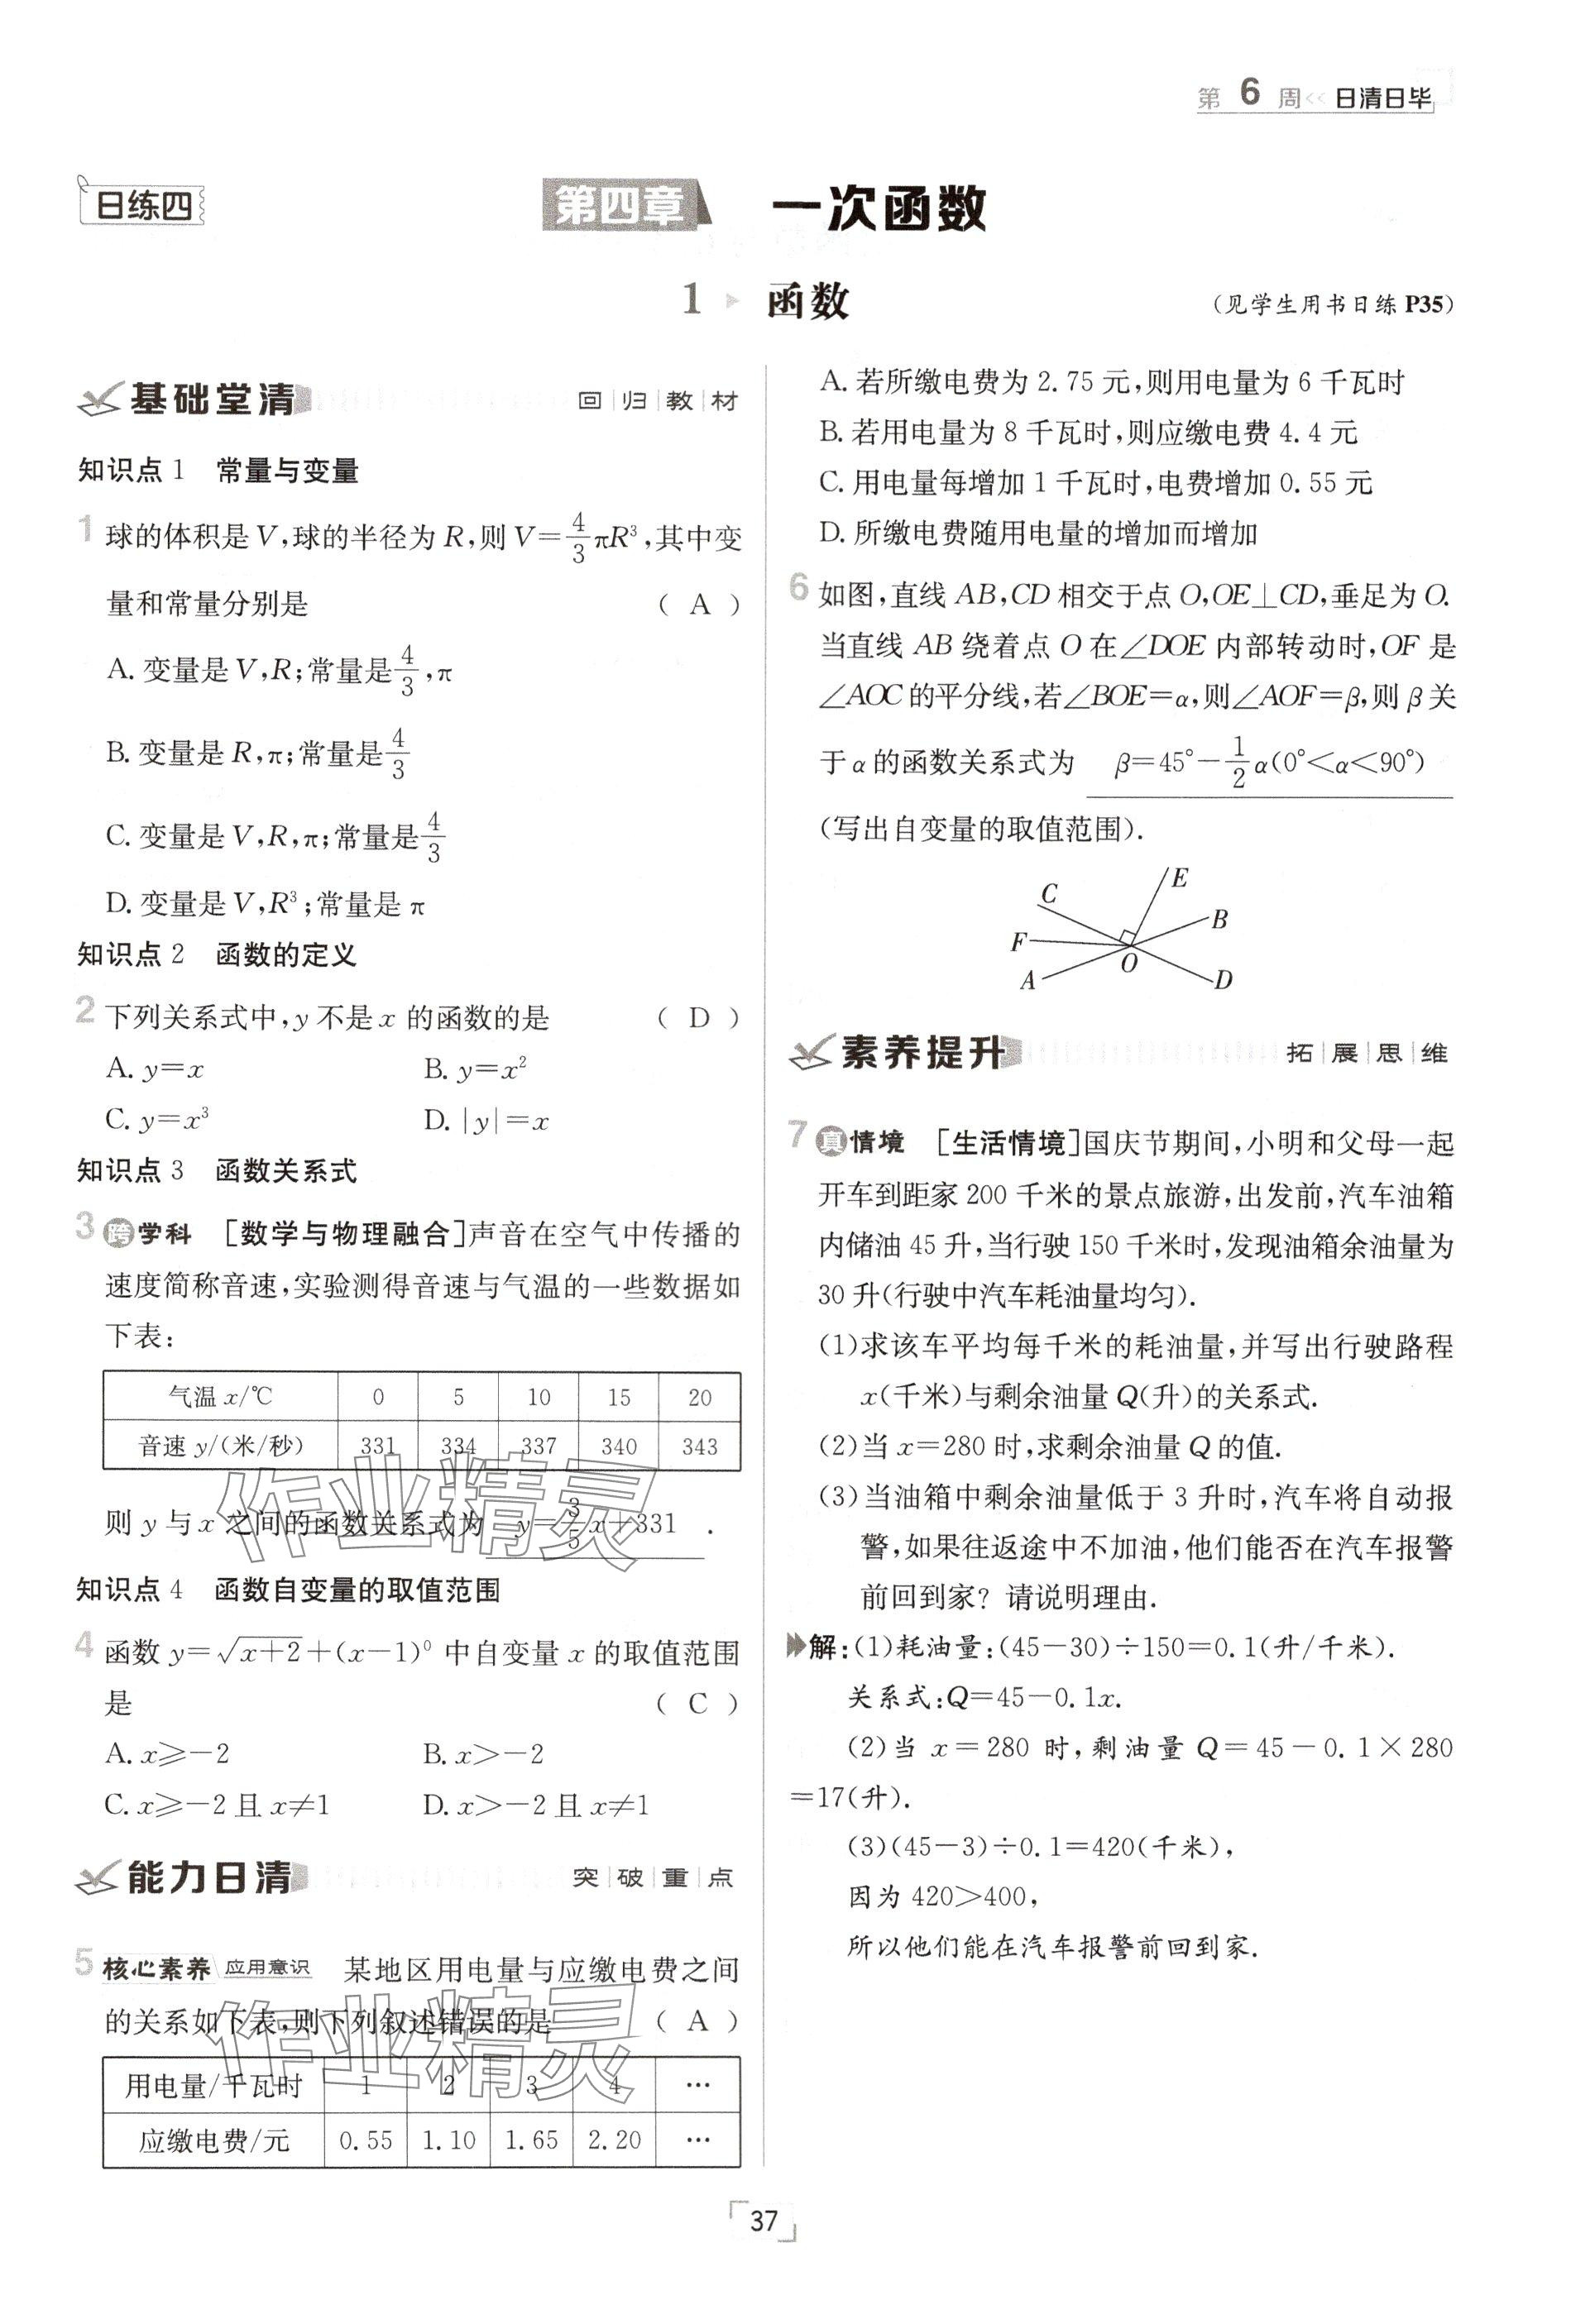 第 6 周<< 日清日毕
日练四
第四章 一次函数
1 函数 (见学生用书日练P35)
基础堂清 回|归|教|材
知识点1 常量与变量
1 球的体积是V,球的半径为R,则V=4/3πR³,其中变
量和常量分别是 ( A )
A. 变量是V,R;常量是4/3,π
B. 变量是R,π;常量是4/3
C. 变量是V,R,π;常量是4/3
D. 变量是V,R³;常量是π
知识点2 函数的定义
2 下列关系式中,y不是x的函数的是 ( D )
A. y=x B. y=x²
C. y=x³ D. |y|=x
知识点3 函数关系式
3 跨学科 [数学与物理融合]声音在空气中传播的
速度简称音速,实验测得音速与气温的一些数据如
下表:
气温x/℃ 0 5 10 15 20
音速y/(米/秒) 331 334 337 340 343
则y与x之间的函数关系式为 y=3/5x+331 .
知识点4 函数自变量的取值范围
4 函数y=√(x+2)+(x−1)⁰中自变量x的取值范围
是 ( C )
A. x⩾−2 B. x>−2
C. x⩾−2且x≠1 D. x>−2且x≠1
能力日清 突|破|重|点
5 核心素养 应用意识 某地区用电量与应缴电费之间
的关系如下表,则下列叙述错误的是 ( A )
用电量/千瓦时 1 2 3 4 …
应缴电费/元 0.55 1.10 1.65 2.20 …
A. 若所缴电费为2.75元,则用电量为6千瓦时
B. 若用电量为8千瓦时,则应缴电费4.4元
C. 用电量每增加1千瓦时,电费增加0.55元
D. 所缴电费随用电量的增加而增加
6 如图,直线AB,CD相交于点O,OE⊥CD,垂足为O.
当直线AB绕着点O在∠DOE内部转动时,OF是
∠AOC的平分线,若∠BOE=α,则∠AOF=β,则β关
于α的函数关系式为 β=45°−1/2α(0°<α<90°)
(写出自变量的取值范围).
E
C
B
F
O
A
D
素养提升 拓|展|思|维
7 真情境 [生活情境]国庆节期间,小明和父母一起
开车到距家200千米的景点旅游,出发前,汽车油箱
内储油45升,当行驶150千米时,发现油箱余油量为
30升(行驶中汽车耗油量均匀).
(1)求该车平均每千米的耗油量,并写出行驶路程
x(千米)与剩余油量Q(升)的关系式.
(2)当x=280时,求剩余油量Q的值.
(3)当油箱中剩余油量低于3升时,汽车将自动报
警,如果往返途中不加油,他们能否在汽车报警
前回到家? 请说明理由.
解:(1)耗油量:(45−30)÷150=0.1(升/千米).
关系式:Q=45−0.1x.
(2)当x=280时,剩油量Q=45−0.1×280
=17(升).
(3)(45−3)÷0.1=420(千米),
因为420>400,
所以他们能在汽车报警前回到家.
作业精灵
作业精灵
37